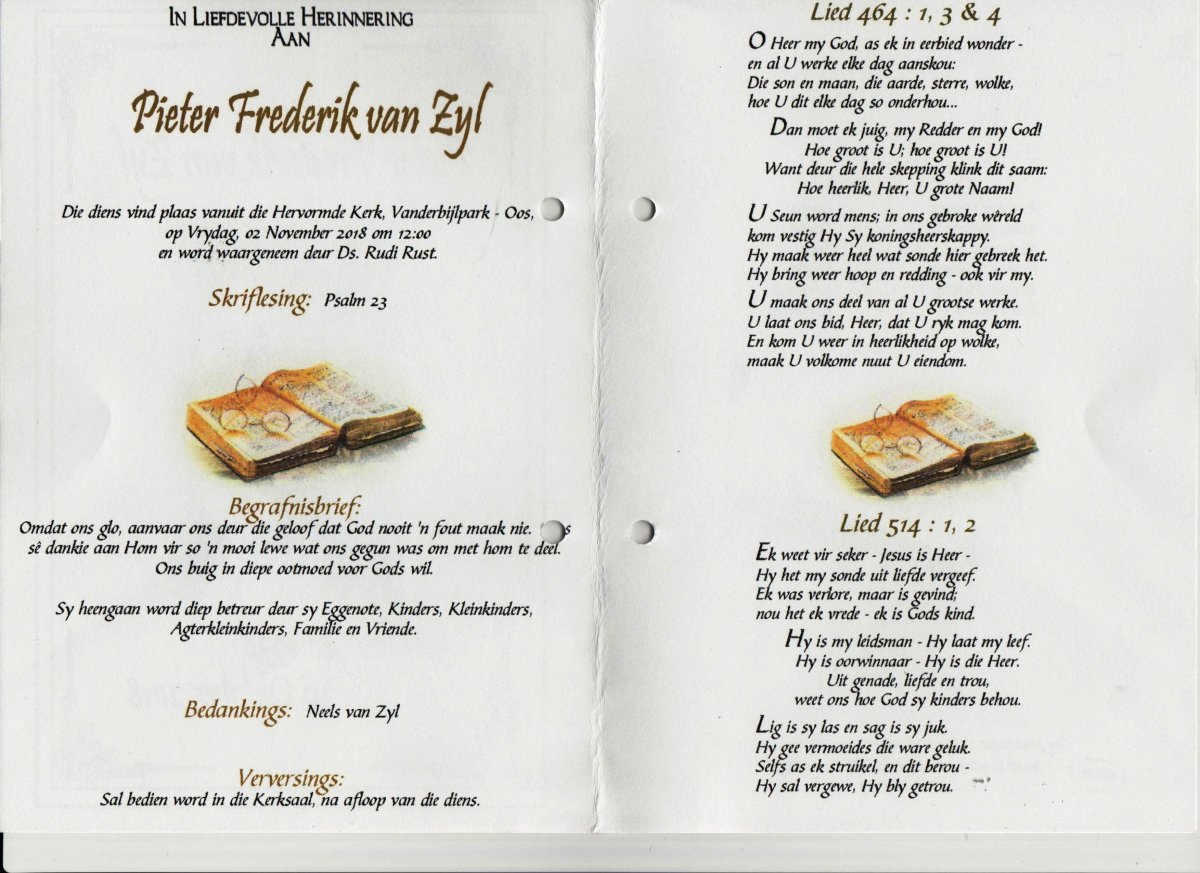 In Liefdevolle Herinnering
Aan
Pieter Frederik van Zyl
Die diens vind plaas vanuit die Hervormde Kerk, Vanderbijlpark - Oos,
op Vrydag, 02 November 2018 om 12:00
en word waargeneem deur Ds. Rudi Rust.
Skriflesing: Psalm 23
Begrafnisbrief:
Omdat ons glo, aanvaar ons deur die geloof dat God nooit 'n fout maak nie.
sê dankie aan Hom vir so 'n mooi lewe wat ons gegun was om met hom te deel.
Ons buig in diepe ootmoed voor Gods wil.
Sy heengaan word diep betreur deur sy Eggenote, Kinders, Kleinkinders,
Agterkleinkinders, Familie en Vriende.
Bedankings: Neels van Zyl
Verversings:
Sal bedien word in die Kerksaal, na afloop van die diens.
Lied 464 : 1, 3 & 4
O Heer my God, as ek in eerbied wonder -
en al U werke elke dag aanskou:
Die son en maan, die aarde, sterre, wolke,
hoe U dit elke dag so onderhou...
Dan moet ek juig, my Redder en my God!
Hoe groot is U; hoe groot is U!
Want deur die hele skepping klink dit saam:
Hoe heerlik, Heer, U grote Naam!
U Seun word mens; in ons gebroke wêreld
kom vestig Hy Sy koningsheerskappy.
Hy maak weer heel wat sonde hier gebreek het.
Hy bring weer hoop en redding - ook vir my.
U maak ons deel van al U grootse werke.
U laat ons bid, Heer, dat U ryk mag kom.
En kom U weer in heerlikheid op wolke,
maak U volkome nuut U eiendom.
Lied 514 : 1, 2
Ek weet vir seker - Jesus is Heer -
Hy het my sonde uit liefde vergeef.
Ek was verlore, maar is gevind;
nou het ek vrede - ek is Gods kind.
Hy is my leidsman - Hy laat my leef.
Hy is oorwinnaar - Hy is die Heer.
Uit genade, liefde en trou,
weet ons hoe God sy kinders behou.
Lig is sy las en sag is sy juk.
Hy gee vermoeides die ware geluk.
Selfs as ek struikel, en dit berou -
Hy sal vergewe, Hy bly getrou.